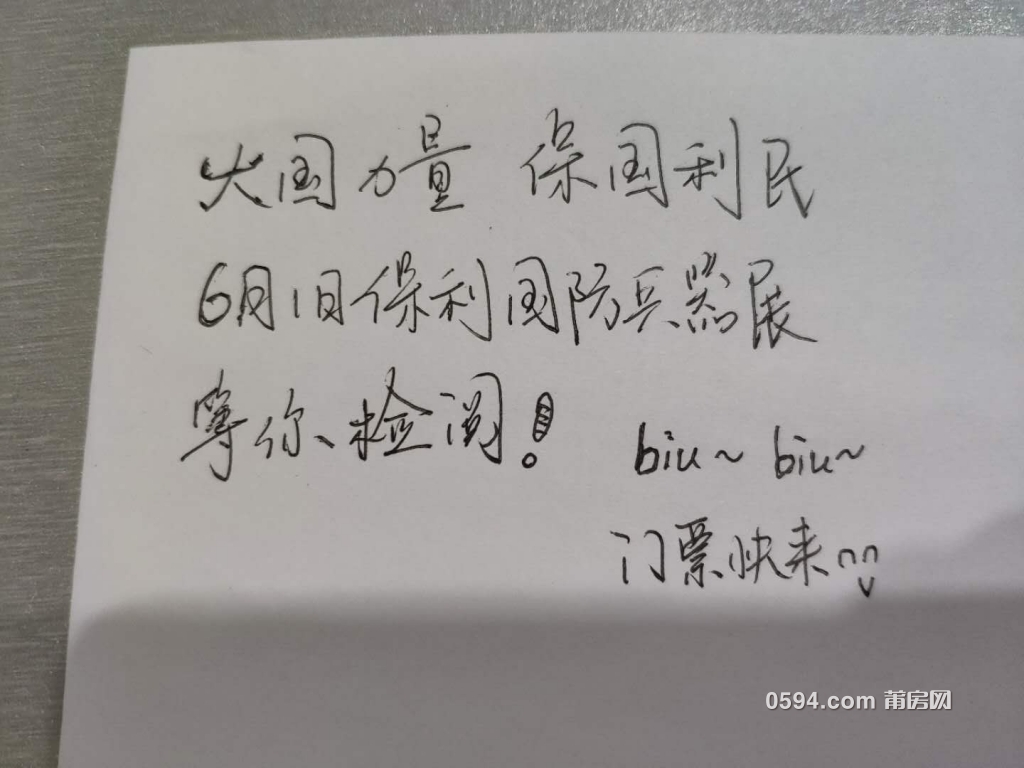 大国力量 保国利民
6月1日保利国防兵器展
等你检阅!
biu~ biu~
门票快来
0594.com 莆房网